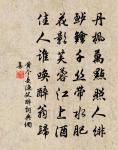 丹楓萬點照人緋
鱸鱠千絲帶水肥
花影芙蓉江上酒
佳人誰喚醉翁歸